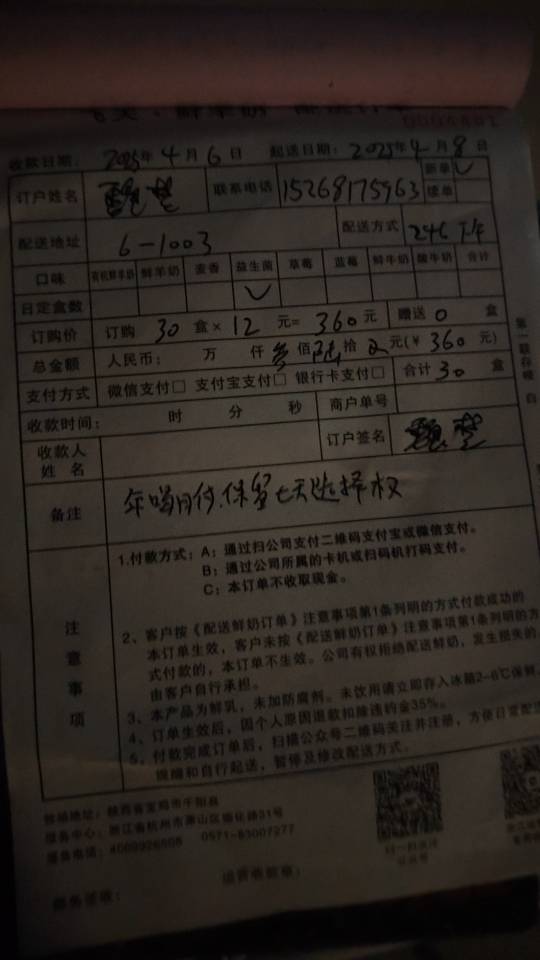 收款日期: 2025年4月6日 起送日期: 2025年4月8日
订户姓名 联系电话 15268175963 新单 ✓ 续单
配送地址 6-1003 配送方式 246 下午
口味 有机鲜羊奶 鲜羊奶 麦香 益生菌 草莓 蓝莓 鲜牛奶 酸牛奶 合计
日定盒数 ✓
订购价 订购 30 盒 × 12 元= 360 元 赠送 0 盒
总金额 人民币: 万 仟 叁 佰 陆 拾 元(¥ 360 元)
支付方式 微信支付□ 支付宝支付□ 银行卡支付□ 合计 30 盒
收款时间: 时 分 秒 商户单号
收款人姓名 订户签名
备注 保留七天选择权
注意事项
1.付款方式: A: 通过扫公司支付二维码支付宝或微信支付。
B: 通过公司所属的卡机或扫码机打码支付。
C: 本订单不收取现金。
2、客户按《配送鲜奶订单》注意事项第1条列明的方式付款成功的
本订单生效, 客户未按《配送鲜奶订单》注意事项第1条列明的方
式付款的, 本订单不生效。公司有权拒绝配送鲜奶, 发生损失的
由客户自行承担。
3、本产品为鲜乳, 未加防腐剂。未饮用请立即存入冰箱2-6℃保鲜
4、订单生效后, 因个人原因退款扣除违约金35%。
5、付款完成订单后, 扫描公众号二维码关注并注册, 方便日常配
和自行起送, 暂停及修改配送方式。
陕西省宝鸡市千阳县
服务中心: 浙江省杭州市萧山区 31号
服务电话: 0571-83007277
扫一扫关注
公众号
第一联存根